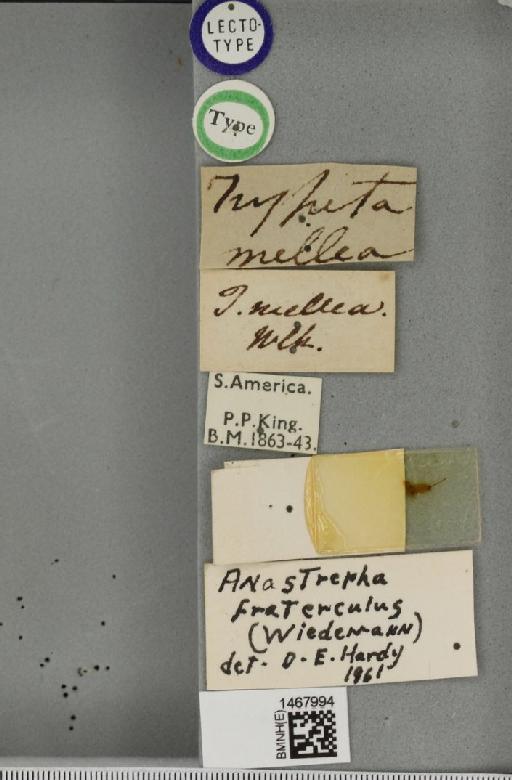 LECTO-
TYPE
Type
Trypeta
mellea
T. mellea.
Wlk.
S.America.
P.P.King.
B.M.1863-43.
Anastrepha
fraterculus
(Wiedemann)
det. D. E. Hardy
1961
BMNH(E)
1467994